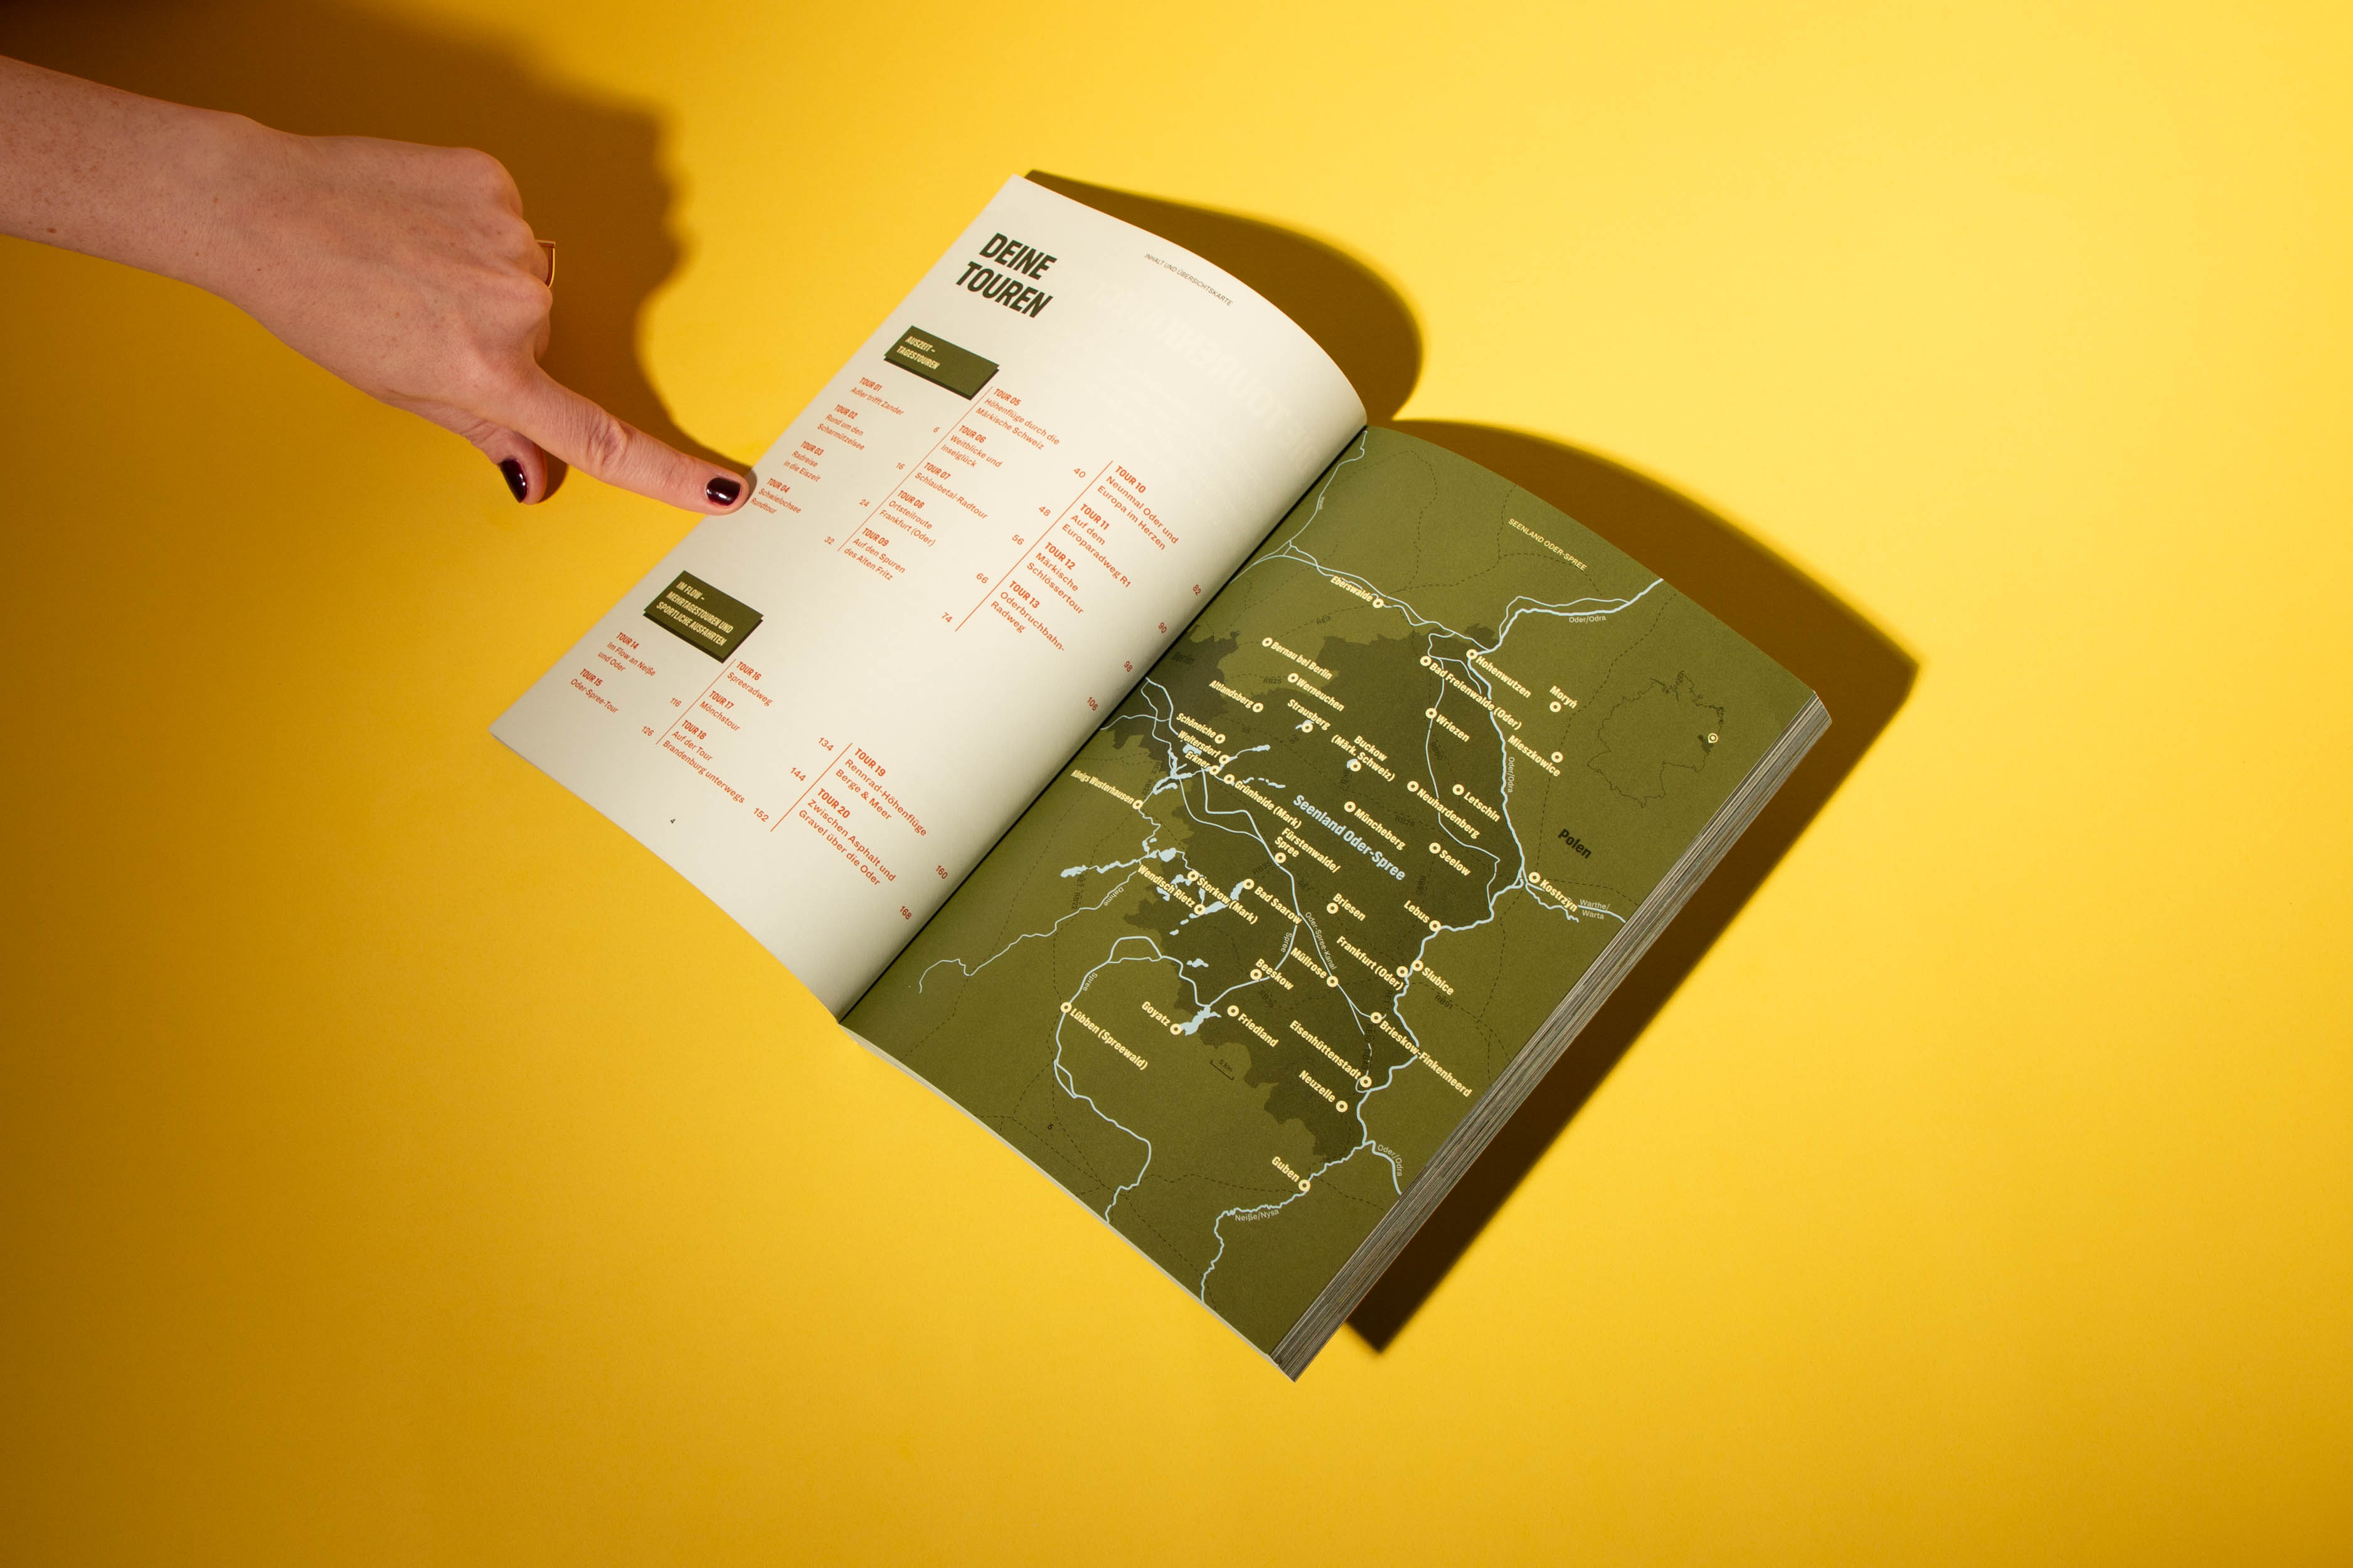 INHALT UND ÜBERSICHTSKARTE
DEINE
TOUREN
AUSZEIT –
TAGESTOUREN
TOUR 01
Adler trifft Zander
6
TOUR 02
Rund um den
Scharmützelsee
16
TOUR 03
Radreise
in die Eiszeit
24
TOUR 04
Schwielochsee
Rundtour
32
TOUR 05
Höhenflüge durch die
Märkische Schweiz
40
TOUR 06
Weitblicke und
Inselglück
48
TOUR 07
Schlaubetal-Radtour
56
TOUR 08
Ortsteilroute
Frankfurt (Oder)
66
TOUR 09
Auf den Spuren
des Alten Fritz
74
TOUR 10
Neunmal Oder und
Europa im Herzen
82
TOUR 11
Auf dem
Europaradweg R1
90
TOUR 12
Märkische
Schlössertour
98
TOUR 13
Oderbruchbahn-
Radweg
106
IM FLOW –
MEHRTAGESTOUREN UND
SPORTLICHE AUSFAHRTEN
TOUR 14
Im Flow an Neiße
und Oder
116
TOUR 15
Oder-Spree-Tour
126
TOUR 16
Spreeradweg
134
TOUR 17
Mönchstour
144
TOUR 18
Auf der Tour
Brandenburg unterwegs
152
TOUR 19
Rennrad-Höhenflüge
Berge & Meer
160
TOUR 20
Zwischen Asphalt und
Gravel über die Oder
168
4
SEENLAND ODER-SPREE
Eberswalde
Oder/Odra
Hohenwutzen
Bad Freienwalde (Oder)
Moryń
Bernau bei Berlin
Berlin
Werneuchen
Altlandsberg
Strausberg
Wriezen
Mieszkowice
Buckow
(Märk. Schweiz)
Oder/Odra
Schöneiche
Woltersdorf
Erkner
Grünheide (Mark)
Königs Wusterhausen
Neuhardenberg
Letschin
Müncheberg
Seenland Oder-Spree
Seelow
Polen
Fürstenwalde/
Spree
Kostrzyn
Warthe/
Warta
Storkow (Mark)
Wendisch Rietz
Bad Saarow
Briesen
Lebus
Dahme
Spree
Oder-Spree-Kanal
Frankfurt (Oder)
Słubice
Müllrose
Beeskow
Spree
Lübben (Spreewald)
Goyatz
Friedland
Brieskow-Finkenheerd
Eisenhüttenstadt
Neuzelle
Oder/Odra
Guben
Neiße/Nysa
5